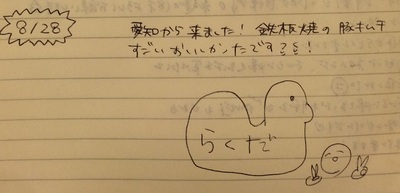 8/28
愛知から来ました！ 鉄板焼の豚キムチ
すごいおいしかったです
らくだ